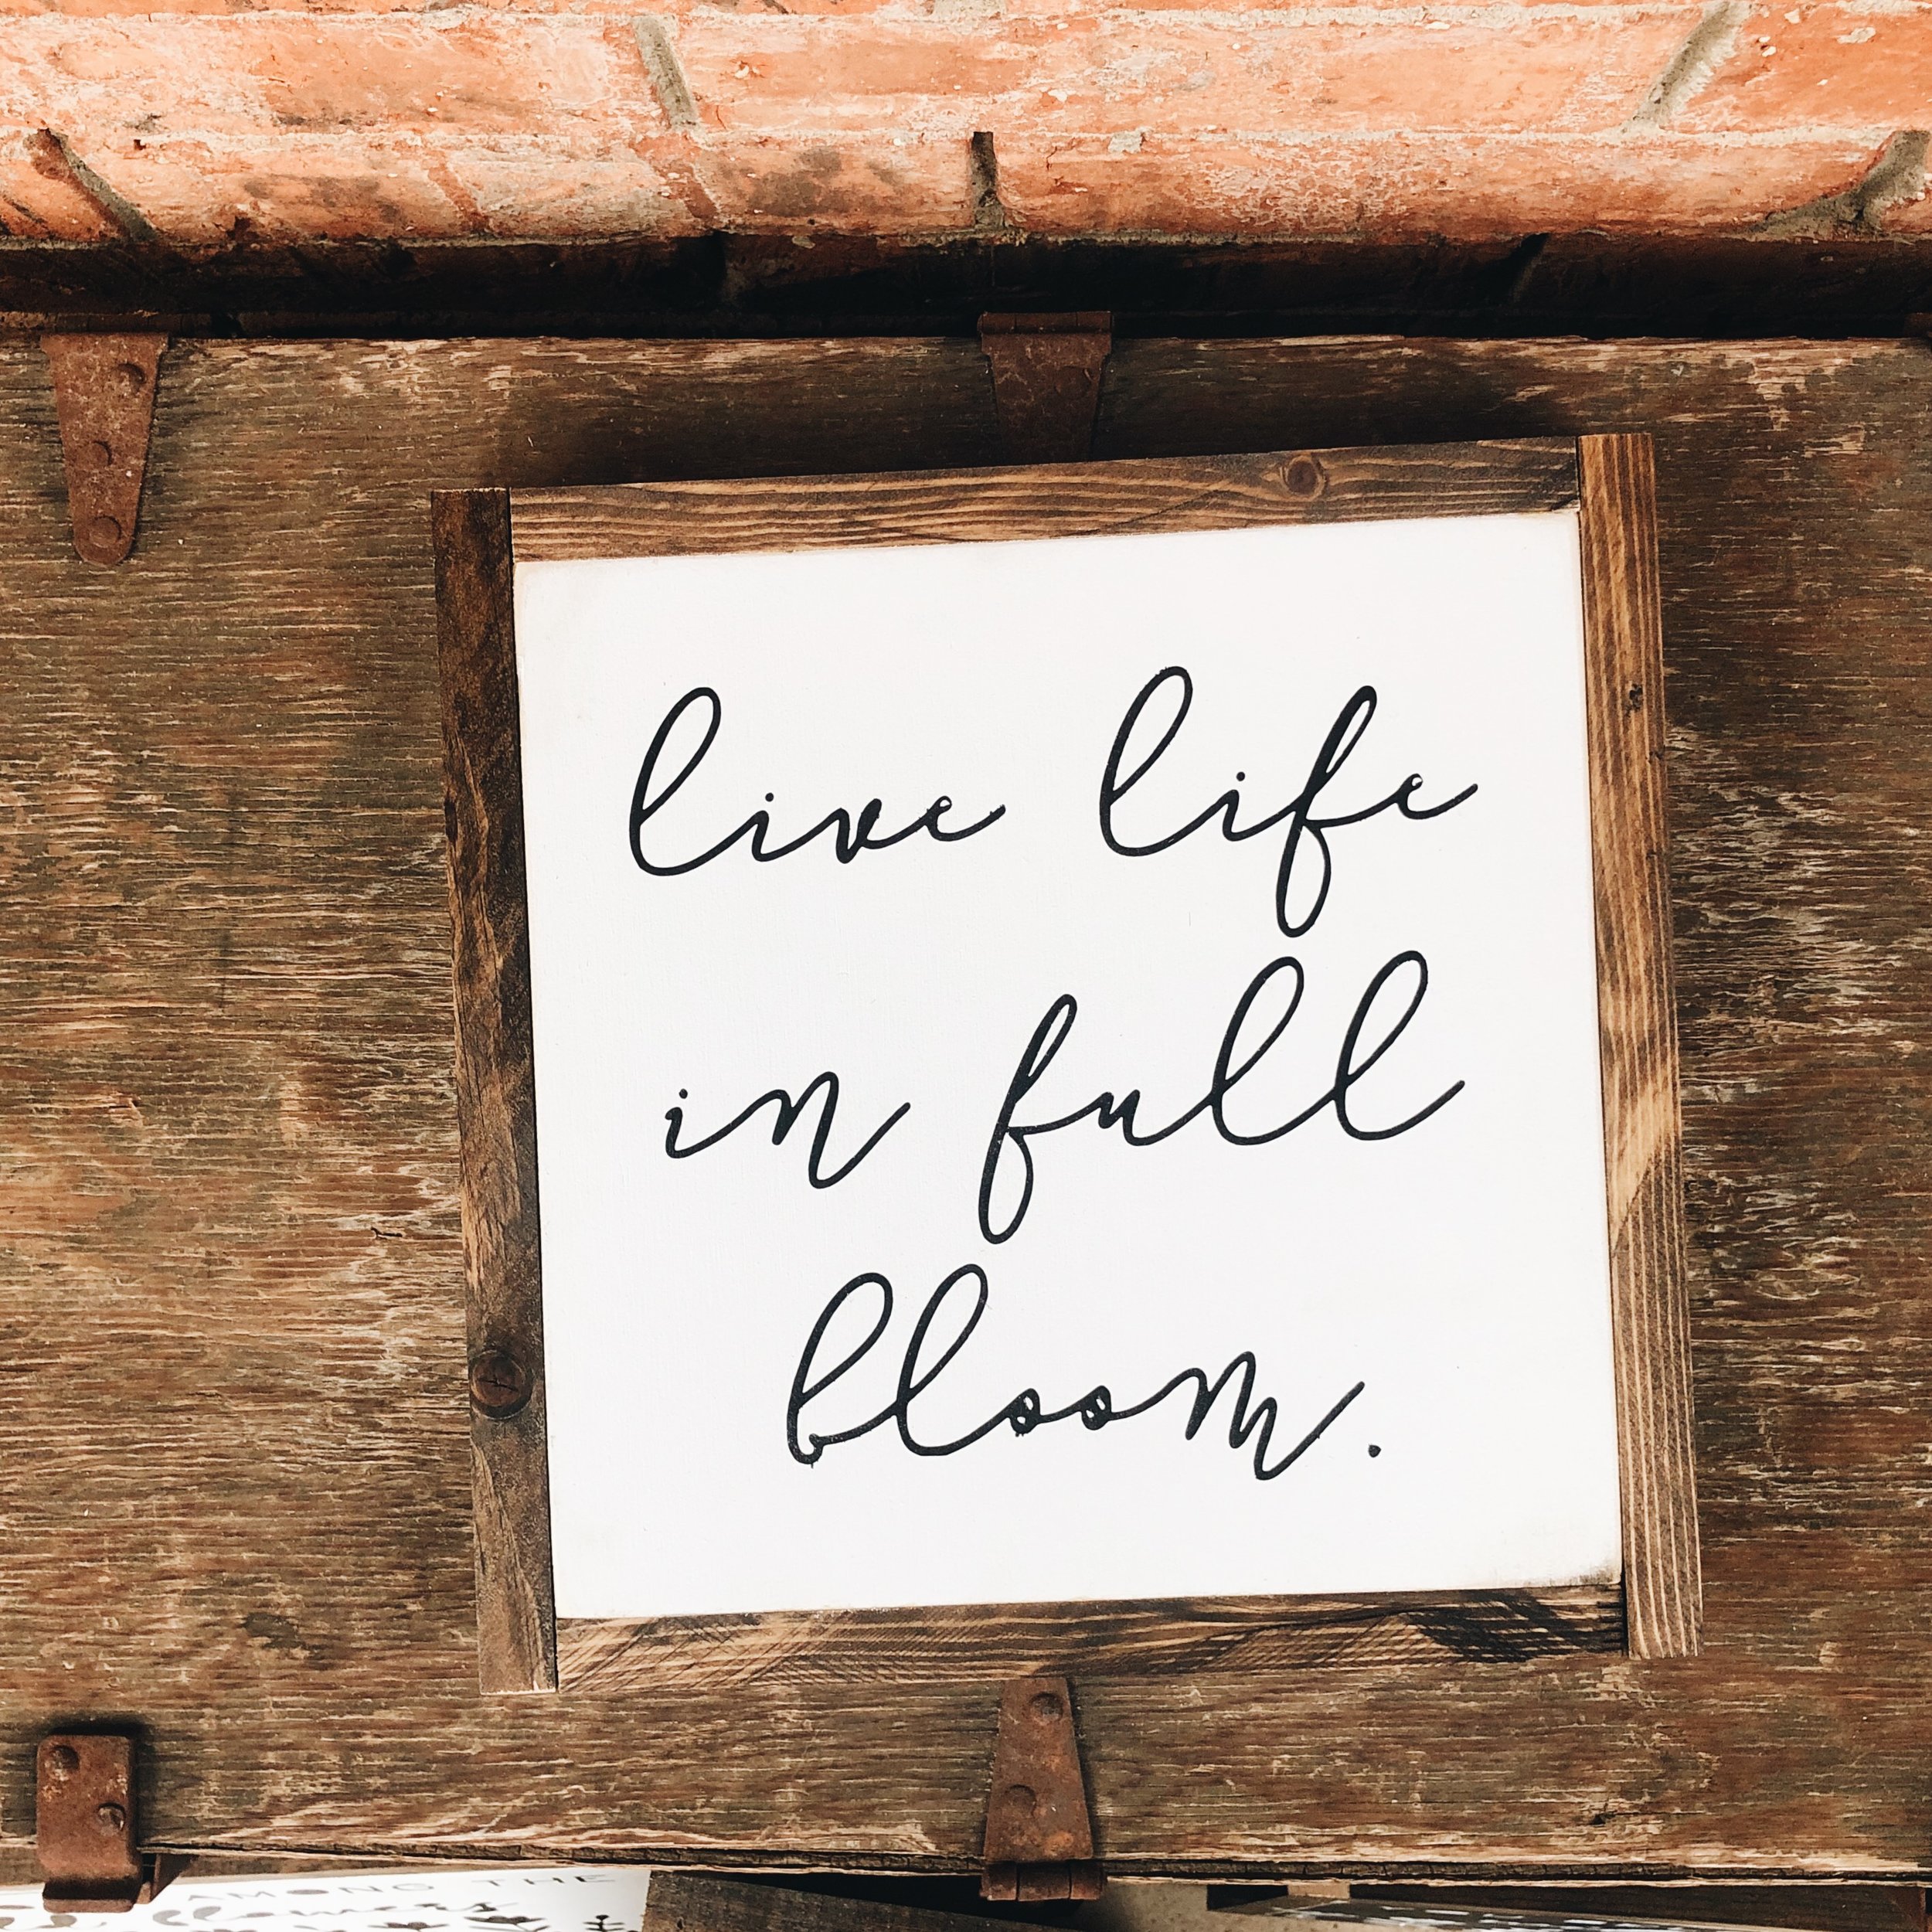 live life
in full
bloom.
AMONG THE